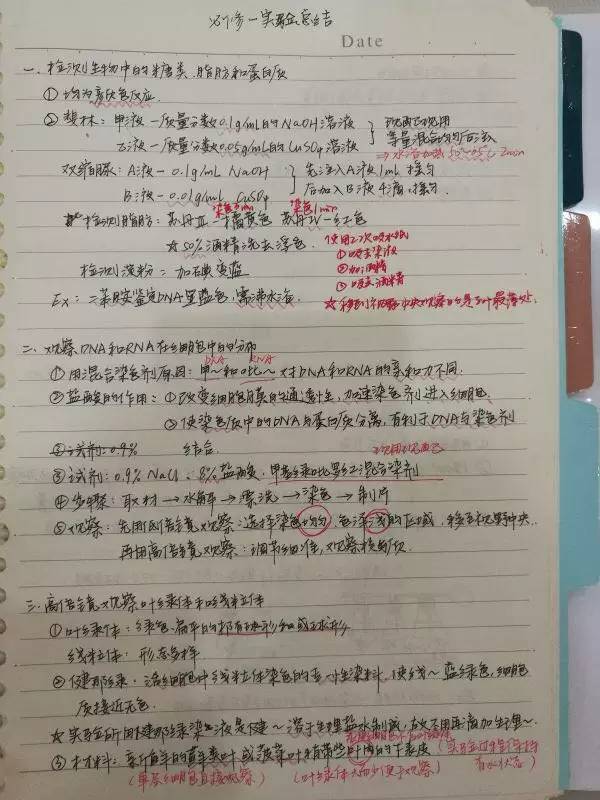 必修一实验总结
Date
一、检测生物中的糖类、脂肪和蛋白质
① 均为颜色反应.
② 斐林: 甲液－质量分数0.1g/mL的NaOH溶液 } 现配现用
乙液－质量分数0.05g/mL的CuSO4溶液 等量混合均匀后注入
⇒ 水浴加热 50~65℃ 2min
双缩脲: A液－0.1g/mL NaOH } 先注入A液1mL 摇匀
B液－0.01g/mL CuSO4 后加入B液4滴, 摇匀.
染色3min 染色1min
检测脂肪: 苏丹Ⅲ－橘黄色 苏丹Ⅳ－红色
☆ 50%酒精洗去浮色. 使用2次吸水纸
① 吸去染液
检测淀粉: 加碘变蓝 ② 加酒精
③ 吸去酒精
Ex: 二苯胺鉴定DNA呈蓝色, 需沸水浴.
二、观察DNA和RNA在细胞中的分布
DNA RNA
① 用混合染色剂原因: 甲~和吡~对DNA和RNA的亲和力不同.
② 盐酸的作用: ① 改变细胞膜的通透性, 加速染色剂进入细胞.
② 使染色质中的DNA与蛋白质分离, 有利于DNA与染色剂
③ 试剂: 0.9% 结合.
现用现配
③ 试剂: 0.9% NaCl、8%盐酸、甲基绿吡罗红混合染剂
④ 步骤: 取材→水解→漂洗→染色→制片
⑤ 观察: 先用低倍镜观察: 选择染色均匀, 色泽浅的区域, 移至视野中央.
再用高倍镜观察: 调节细准, 观察核和质.
三、高倍镜观察叶绿体和线粒体
① 叶绿体: 绿色、扁平的椭球形或球形
线粒体: 形态多样
② 健那绿: 活细胞中线粒体染色的专一性染料, 使线~蓝绿色, 细胞
质接近无色.
☆ 实验所用健那绿染液是健~溶于生理盐水制成, 故不用再滴加生理~.
③ 材料: 新鲜的藓类叶或菠菜叶稍带些叶肉的下表皮
(单层细胞可直接观察) (叶绿体大而少便于观察)
有水状态)